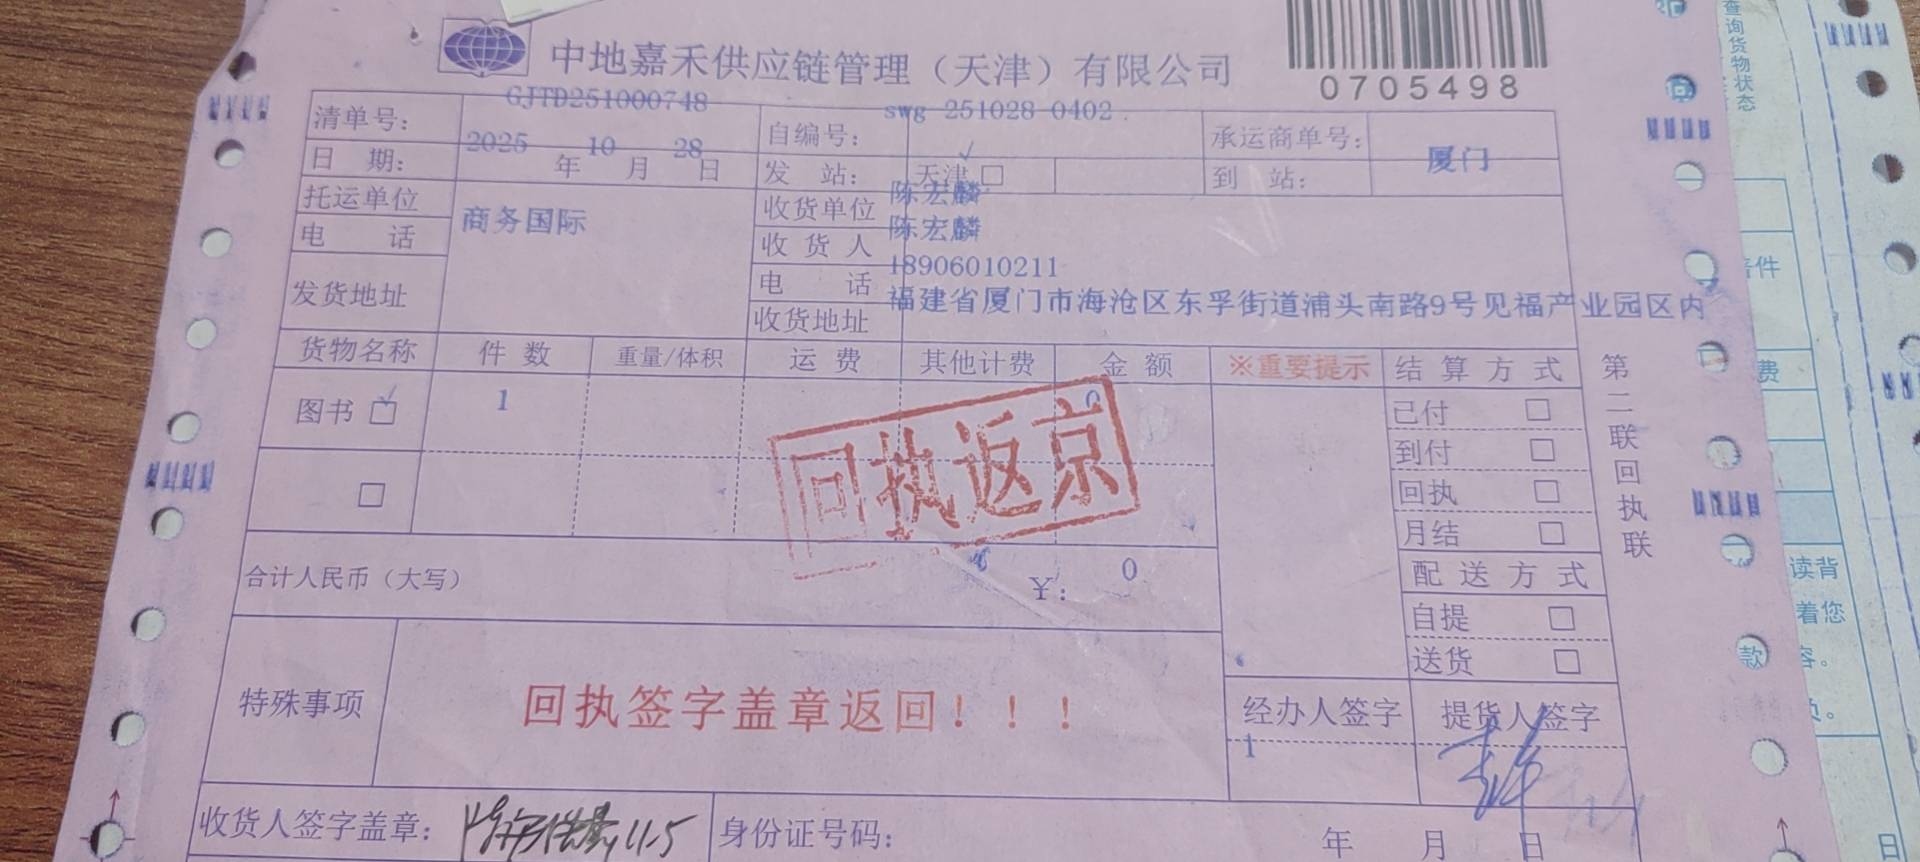 中地嘉禾供应链管理（天津）有限公司
0705498
清单号： GJTD251000748 自编号： swg-251028-0402 承运商单号：
日 期： 2025 年 10 月 28 日 发 站： 天津 □ 到 站： 厦门
托运单位 商务国际 收货单位 陈宏麟
电 话 收 货 人 陈宏麟
电 话 18906010211
发货地址 收货地址 福建省厦门市海沧区东孚街道浦头南路9号见福产业园区内
货物名称 件 数 重量/体积 运 费 其他计费 金 额 ※重要提示 结 算 方 式
图书 1 0 已付
到付
回执
月结
回执返京
合计人民币（大写） ¥： 0
配 送 方 式
自提
送货
特殊事项 回执签字盖章返回！！！
经办人签字 提货人签字
1
收货人签字盖章： 11.5 身份证号码： 年 月 日
第二联回执联
查询货物状态
件
费
读背
着您
款
容。
日